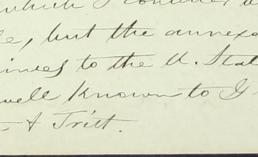 which I consider
but the annexa
to the U. Stat
well known to G
& Trist.